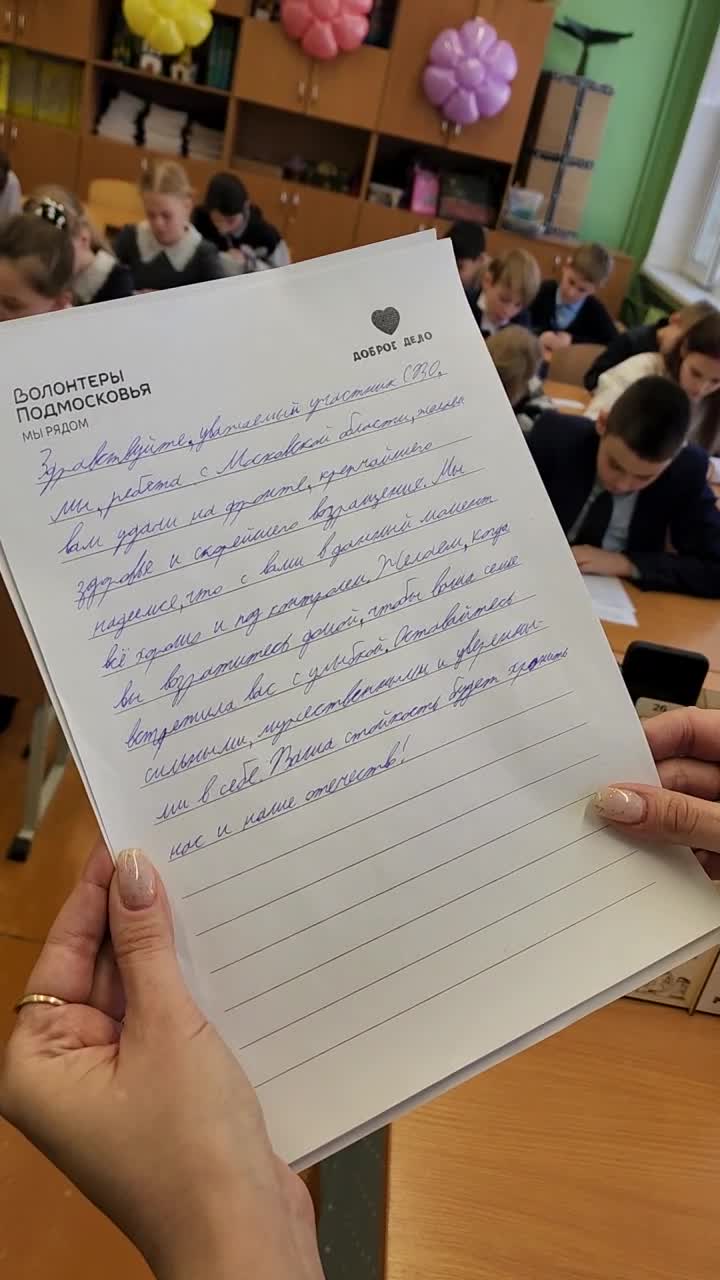 ВОЛОНТЕРЫ
ПОДМОСКОВЬЯ
МЫ РЯДОМ
ДОБРОЕ ДЕЛО
Здравствуйте, уважаемый участник СВО,
мы, ребята с Московской области, желаем
вам удачи на фронте, крепчайшего
здоровье и скорейшего возращение. Мы
надеемся, что с вами в данный момент
всё хорошо и под контролем. Желаем, когда
вы возратитесь домой, чтобы ваша семья
встретила вас с улыбкой. Оставайтесь
сильными, мужественными и уверенны-
ми в себе. Ваша стойкость будет хранить
нас и наше отечество!
26